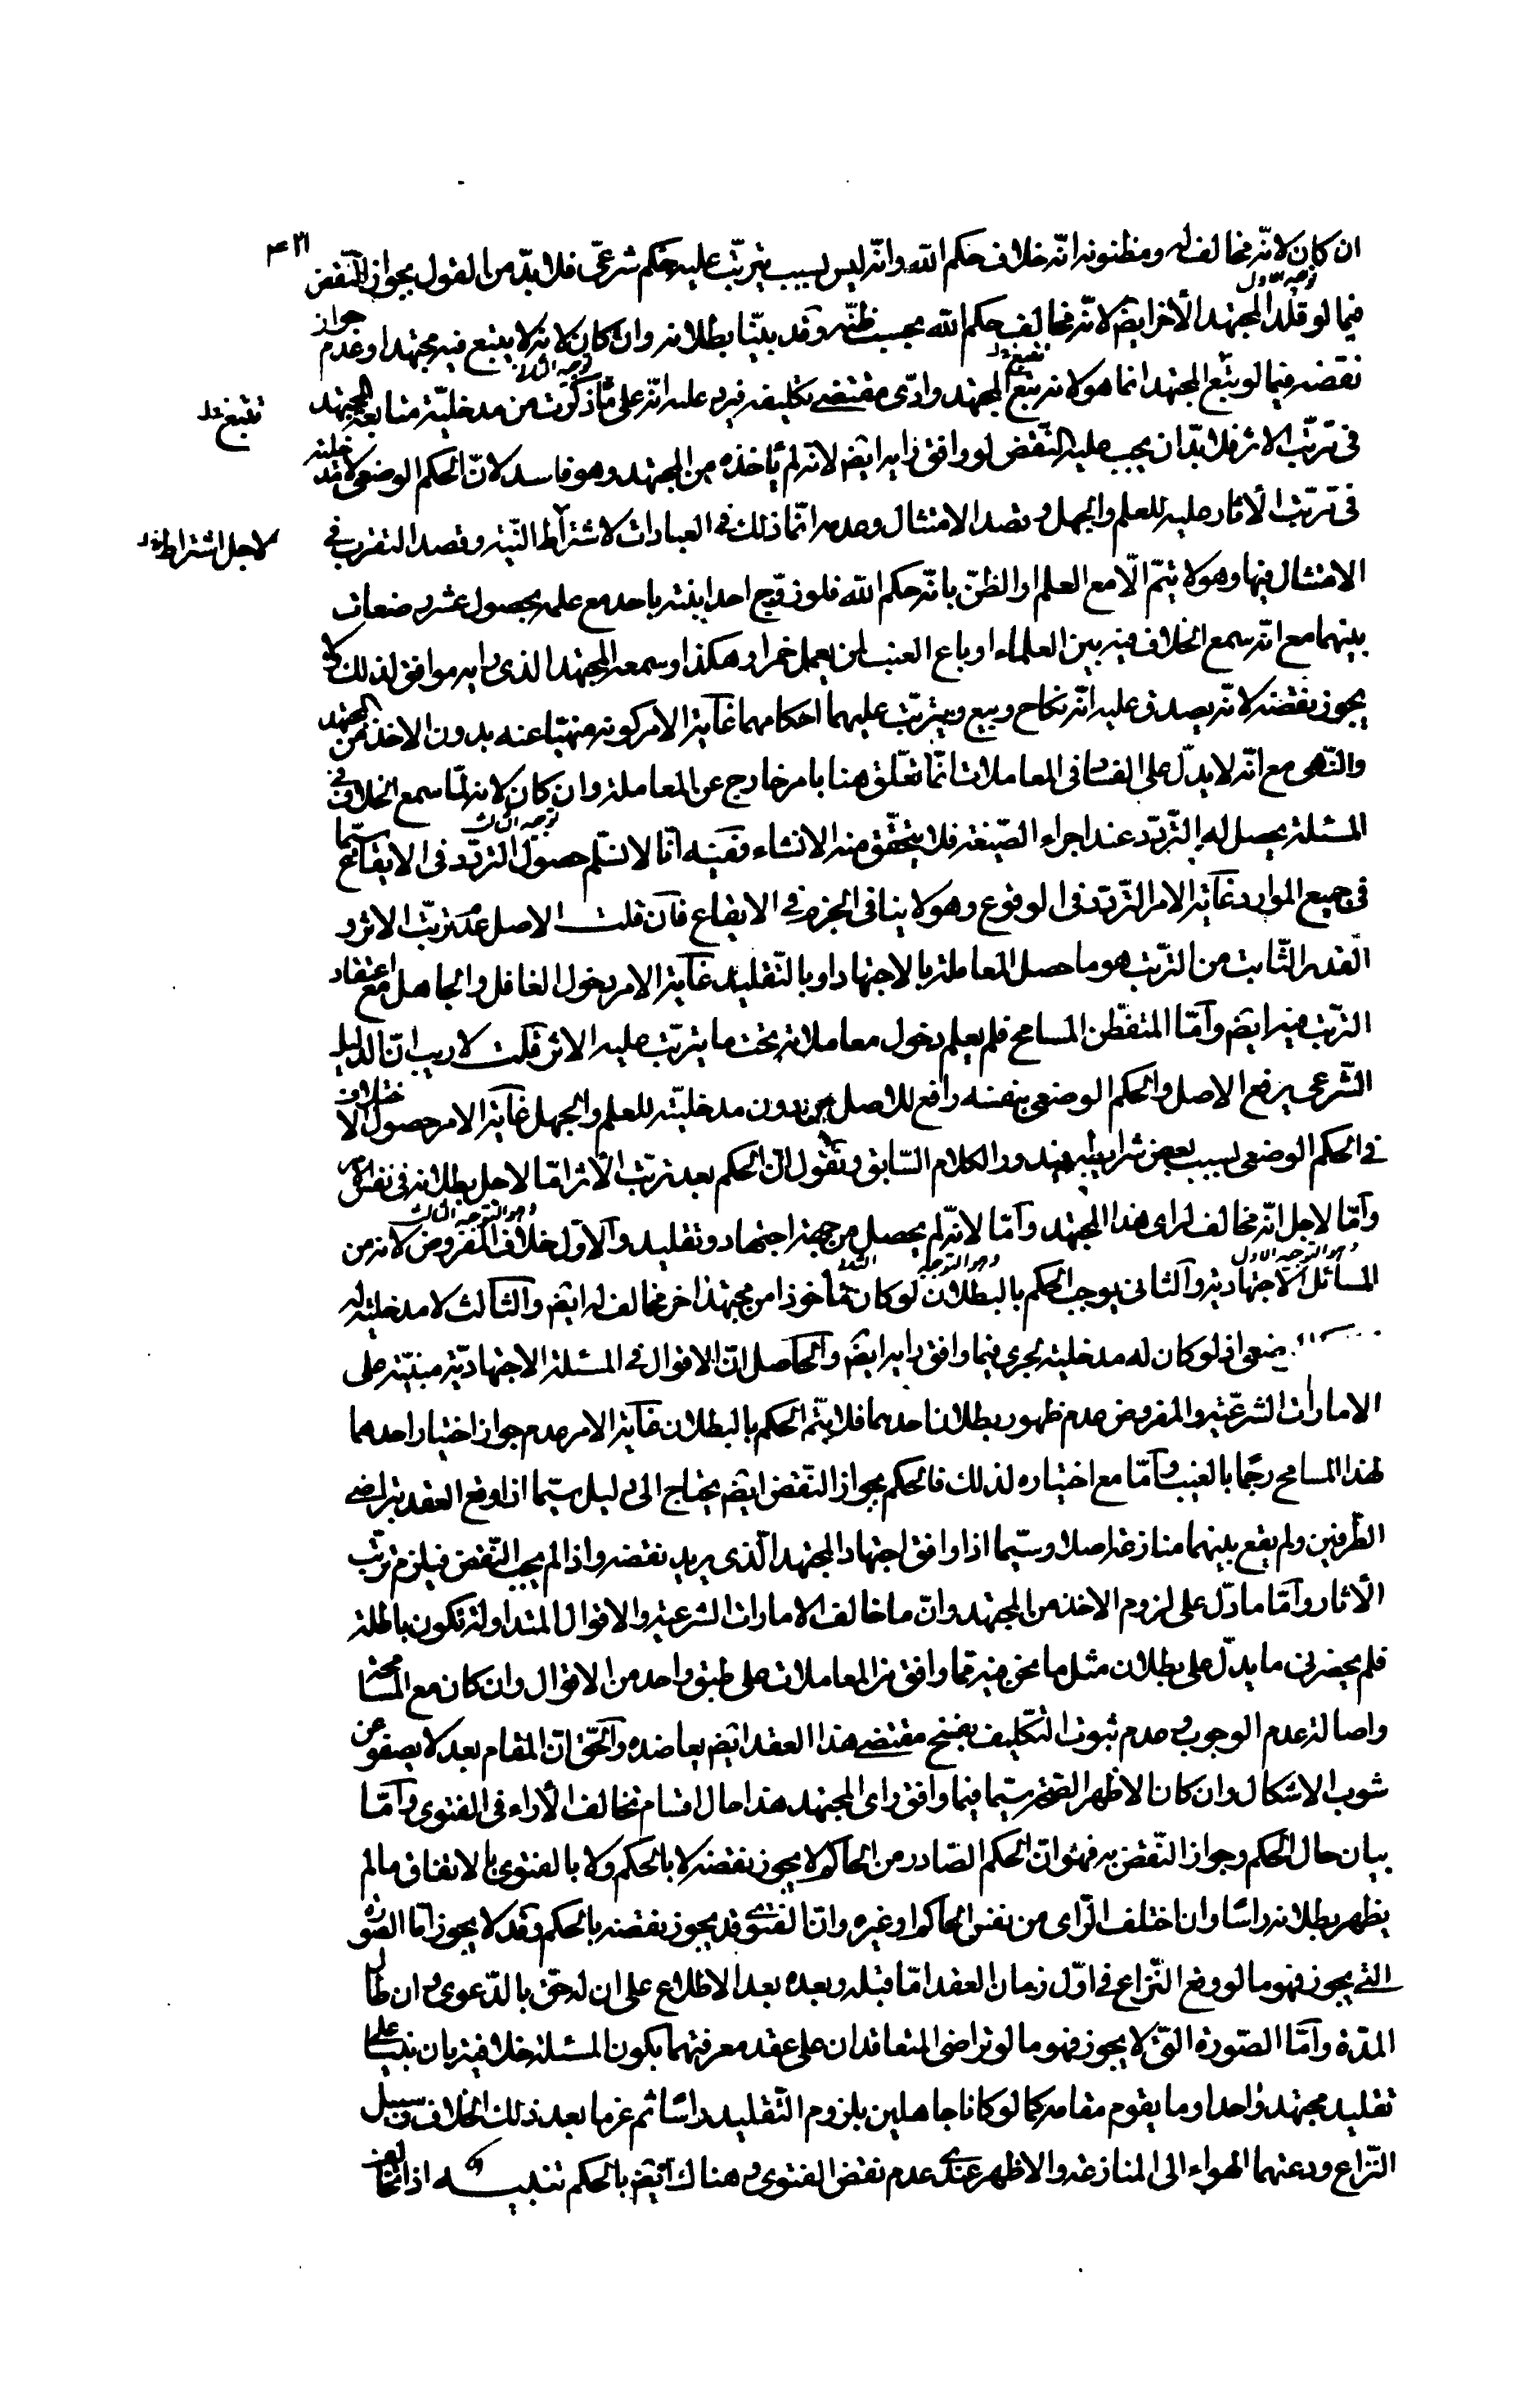 ٤٢١
ان كان لانّه مخالف له ومظنونه انّه خلاف حكم اللّه وانّه ليس بسبب يترتّب عليه حكم شرعىّ فلا بدّ من القول بجواز النّقض
توجيه الاول
فيما لو قلّد المجتهد الأخر ايضً لانّه مخالف حكم اللّه بحسب ظنّه وقد بيّنّا بطلانه وان كان لانه لا يتبع فيه مجتهدا وعدم جواز
توجيه الثانى
نقضه فيما لو يتّبع المجتهد انما هو لانه يتبع المجتهد وادّى مقتضى تكليفه فيرد عليه انّه على ما ذكرت من مدخليّة متابعة المجتهد
فى ترتّب الاثر فلا بدّ ان يجب عليه النّقض لو وافق رايه ايضً لانّه لم يأخذه من المجتهد وهو فاسد لانّ الحكم الوضعى لا مدخلية
فى ترتّب الأثار عليه للعلم والجهل وقصد الامتثال وعدمه انّما ذلك فى العبادات لاشتراط النّية وقصد التقرب فى
لاجل اشتراط
الامتثال فيها وهو لا يتمّ الّا مع العلم او الظنّ بانّه حكم اللّه فلو زوّج احد ابنته باحد مع علمه بحصول عشر رضعات
بينهما مع انّه سمع الخلاف فيه بين العلماء او باع العنب لمن يعمل خمرا وهكذا وسمعه المجتهد الذى رايه موافق لذلك لا
يجوز نقضه لانّه يصدق عليه انّه نكاح وبيع ويترتّب عليهما احكامهما غاية الامر كونه منهيّا عنه بدون الاخذ من المجتهد
والنّهى مع انّه لا يدلّ على الفساد فى المعاملات انّما تعلّق هنا بامر خارج عن المعاملة وان كان لانه لمّا سمع الخلاف فى
توجيه الثالث
المسئلة يحصل له التّردّد عند اجراء الصّيغة فلا يتحقّق منه الانشاء ففيه انّا لا نسلّم حصول التردّد فى الايقاع سيّما
فى جميع الموارد غاية الامر التّردّد فى الوقوع وهو لا ينافى الجزم فى الايقاع فان قلت الاصل عدم ترتّب الاثر و
القدر الثّابت من الترتّب هو ما حصل المعاملة بالاجتهاد او بالتّقليد غاية الامر دخول الغافل والجاهل مع اعتقاد
الترّتب فيه ايضً وامّا المتفطّن المسامح فلم يعلم دخول معاملاته تحت ما يترتّب عليه الاثر قلت لا ريب انّ الدليل
الشّرعى يرفع الاصل والحكم الوضعى بنفسه رافع للاصل من دون مدخليّة للعلم والجهل غاية الامر حصول الاختلاف
فى الحكم الوضعى بسبب بعض شرايطه فيدور الكلام السّابق ونقول انّ الحكم بعدم ترتّب الأثر امّا لاجل بطلانه فى نفس الامر
وامّا لاجل انّه مخالف لراى هذا المجتهد وامّا لانّه لم يحصل من جهة اجتهاد وتقليد والاوّل خلاف المفروض لانه من
وهو التوجيه الثالث
وهو التوجيه الاول
وهو التوجيه الثانى
المسائل الاجتهادية والثانى يوجب الحكم بالبطلان لو كان مأخوذا من مجتهد اخر مخالف له ايضً والثالث لا مدخلية له
اذ لو كان له مدخلية لجرى فيما وافق رايه ايضً والحاصل انّ الاقوال فى المسئلة الاجتهاديّة مبنيّة على
الامارات الشرعيّة والمفروض عدم ظهور بطلان احدهما فلا يتمّ الحكم بالبطلان غاية الامر عدم جواز اختيار احدهما
لهذا المسامح رجما بالغيب وامّا مع اختياره لذلك فالحكم بجواز النّقض ايضً يحتاج الى دليل سيّما اذا وقع العقد بتراضى
الطّرفين ولم يقع بينهما منازعة اصلا وسيّما اذا وافق اجتهاد المجتهد الّذى يريد نقضه واذا لم يجب النّقض فيلزم ترتّب
الأثار وامّا ما دلّ على لزوم الاخذ من المجتهد وانّ ما خالف الامارات الشرعية والاقوال المتداولة تكون باطلة
فلم يحضرنى ما يدلّ على بطلان مثل ما نحن فيه ممّا وافق من المعاملات على طبق واحد من الاقوال وان كان مع المسامحة
واصالة عدم الوجوب وعدم ثبوت التّكليف بفسخ مقتضى هذا العقد ايضً يعاضده والحقّ انّ المقام بعد لا يصفو عن
شوب الاشكال وان كان الاظهر الصّحّة سيّما فيما وافق راى المجتهد هذا حال اقسام تخالف الأراء فى الفتوى وامّا
بيان حال الحكم وجواز النّقض به فهو انّ الحكم الصّادر من الحاكم لا يجوز نقضه لا بالحكم ولا بالفتوى بالاتفاق مالم
يظهر بطلانه راسًا وان اختلف الرّاى من نفس الحاكم او غيره وانّ الفتوى قد يجوز نقضه بالحكم وقد لا يجوز امّا الصّورة
التى يجوز فهو ما لو وقع النّزاع فى اوّل زمان العقد امّا قبله وبعده بعد الاطلاع على ان له حقّ بالدّعوى وان طال
المدّة وامّا الصّورة التى لا يجوز فهو ما لو تراضى المتعاقدان على عقد مع معرفتهما بكون المسئلة خلافية بان بنيا على
تقليد مجتهد واحد او ما يقوم مقامه كما لو كانا جاهلين بلزوم التّقليد راسًا ثم عرفا بعد ذلك الخلاف وسبيل
النّزاع ودعتهما الهواء الى المنازعة والاظهر عندى عدم نقض الفتوى هناك ايضً بالحكم تنبيه اذا